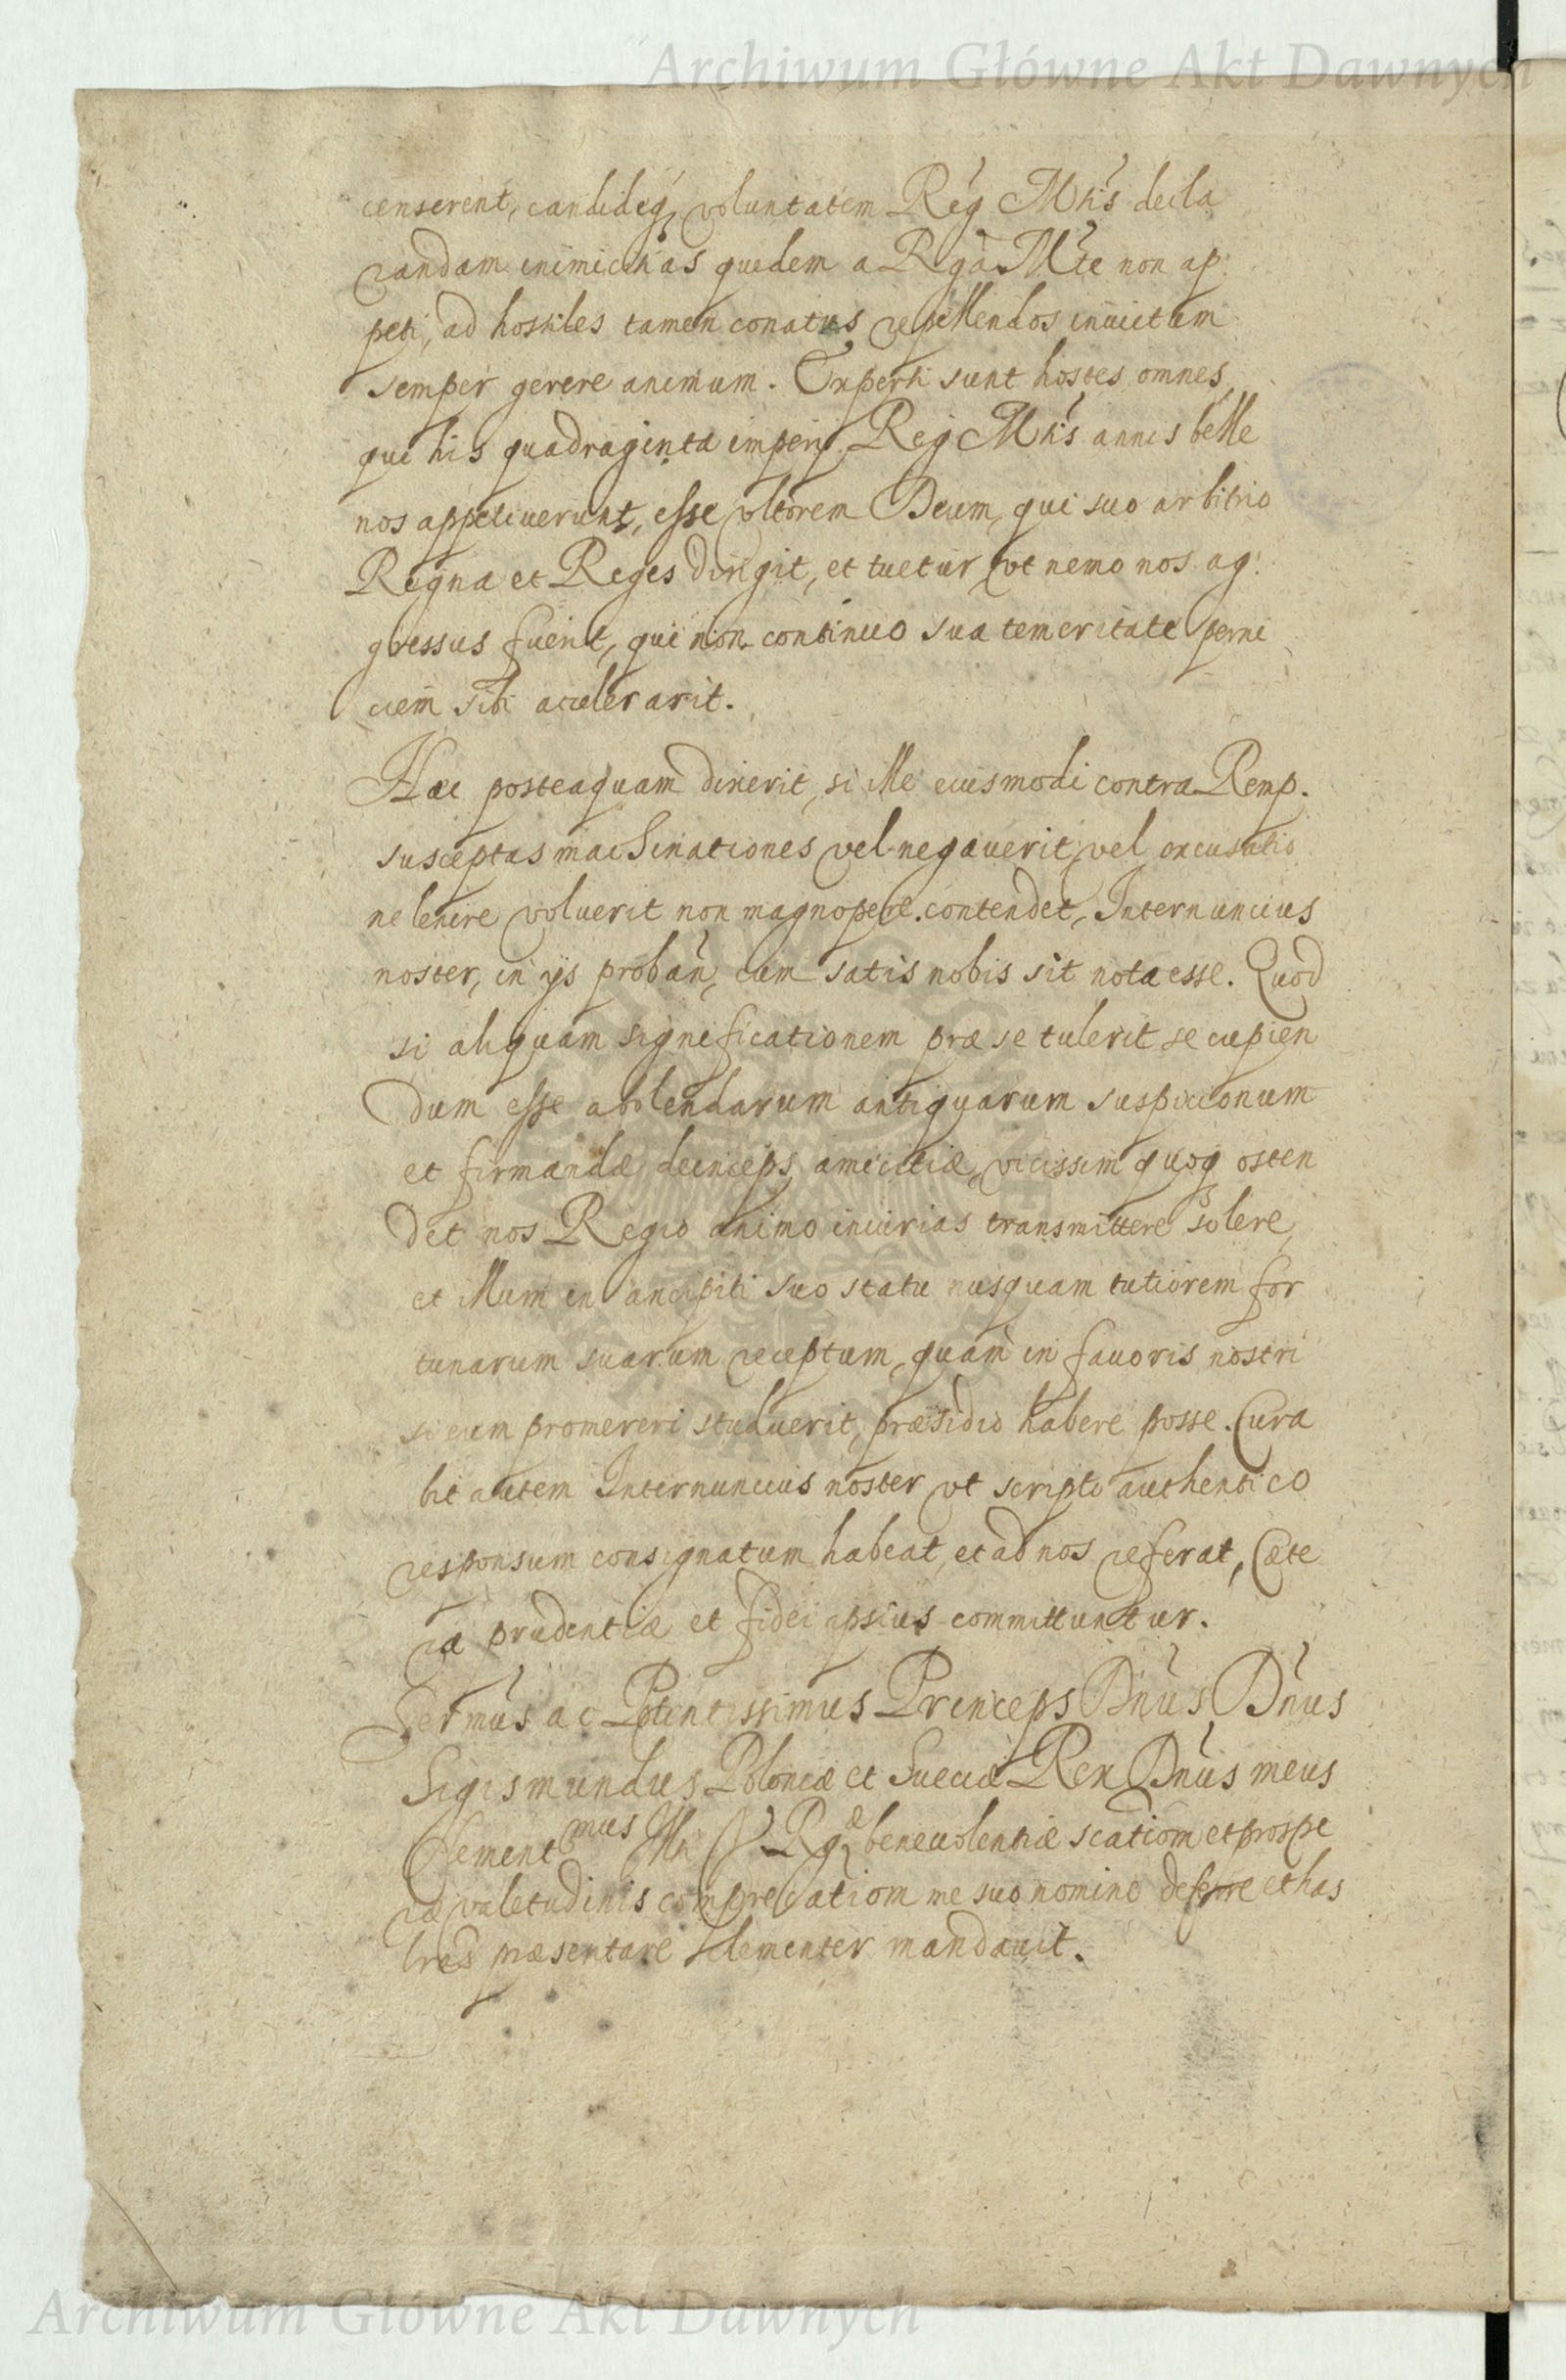 Archiwum Główne Akt Dawnych
censerent, candideq, voluntatem Reg Mtis decla
randam inimicitias quidem a Rga Mte non ap
peti, ad hostiles tamen conatus repellendos inuictum
semper gerere animum. Experti sunt hostes omnes,
qui his quadraginta imperij Reg Mtis annis belle
nos appetiuerunt, esse vltorem Deum, qui suo arbitrio
Regna et Reges dirigit, et tuetur, vt nemo nos ag:
gressus fuerit, qui non continuo sua temeritate perni
ciem sibi accelerarit.
Hæc posteaquam dixerit, si ille eiusmodi contra Remp.
susceptas machinationes vel negauerit, vel excusatio
ne lenire voluerit non magnopere contendet, Internuncius
noster, in ijs proban, cum satis nobis sit nota esse. Quod
si aliquam significationem præ se tulerit se cupien
dum esse abolendarum antiquarum suspicionum
et firmandæ deinceps amicitiæ, vicissim quoq osten
det nos Regio animo iniurias transmittere solere,
et illum in ancipiti suo statu nusquam tutiorem for
tunarum suarum receptum, quam in fauoris nostri
si eum promereri studuerit, præsidio habere posse. Cura
bit autem Internuncius noster vt scripto authentico
responsum consignatum habeat, et ad nos referat, Cæte
ra prudentiæ et fidei ipsius committuntur.
Sermus ac Potentissimus Princeps Dnus Dnus
Sigismundus Poloniæ et Sueciæ Rex Dnus meus
Clementmus Illri V Rgæ beneuolentiæ scatiom et prospe
ræ valetudinis comprecatiom me suo nomine deferre et has
lres præsentare clementer mandauit.
Archiwum Główne Akt Dawnych